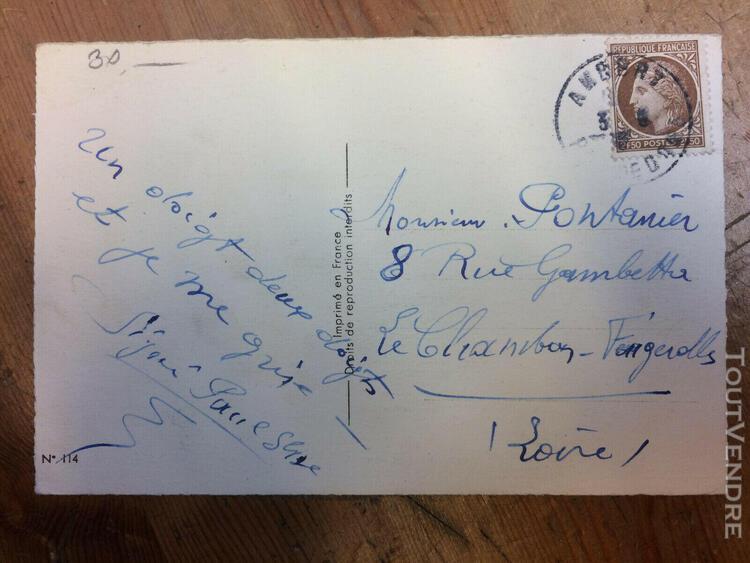 30,—
RÉPUBLIQUE FRANÇAISE
2F50 POSTES 2F50
AMBERT
Un doigt deux doigts
et je me grise
Signé
Imprimé en France
Droits de reproduction interdits
Monsieur. Pontanier
8 Rue Gambetta
Le Chambon-Feugerolles
(Loire)
N° 114
TOUTVENDRE